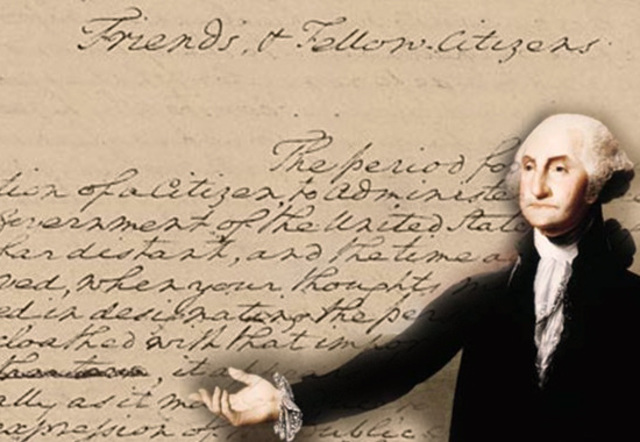 Friends, & Fellow-Citizens
The period fo
tion of a Citizen, to Administe
overnment of the United State
far distant, and the time a
ved, when your thoughts
ed in designating the per
cloathed with that impo
, it a
ally as it m
expression of public